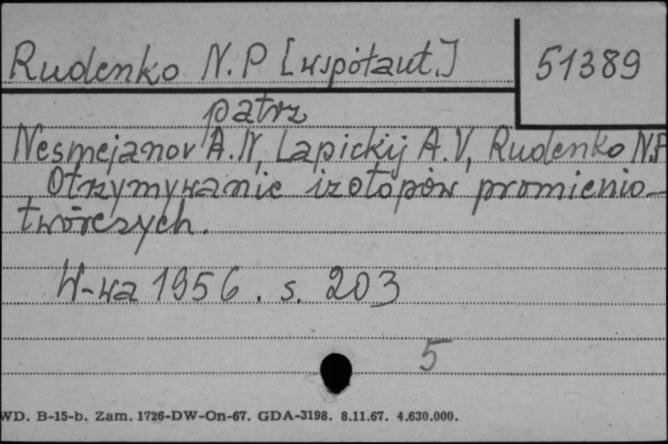 Rudenko N.P [współaut.] 51389
patrz
Nesmejanov A.N, Lapickij A.V, Rudenko N.P
Otrzymywanie izotopów promienio-
twórczych.
W-wa 1956. s. 203
5
WD. B-15-b. Zam. 1726-DW-On-67. GDA-3198. 8.11.67. 4.630.000.